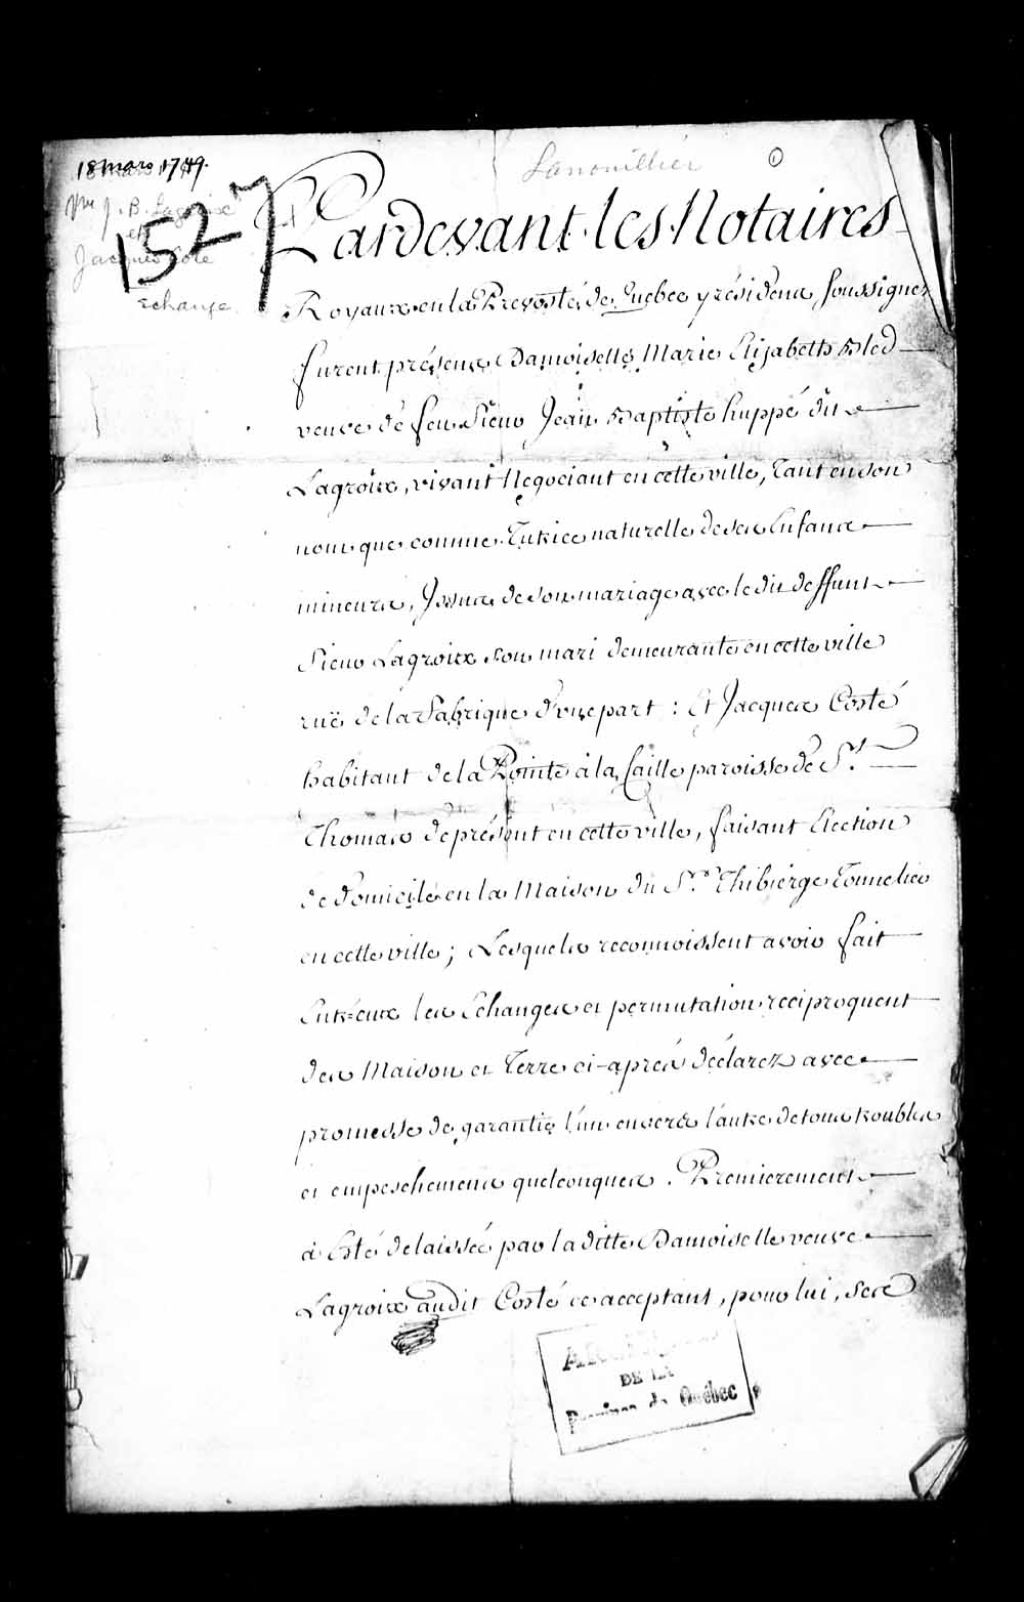 18 mars 1749.
Lanouillier
1
Vve J. B. Lagroix
et
Jacques Coté
Echange
1527
Pardevant les Notaires
Royaux en la Prevosté de Quebec y résidens, soussignez
furent présens Damoiselle Marie Elizabeth Bled
veuve de feu Sieur Jean Baptiste huppé dit
Lagroix, vivant Negociant en cette ville, Tant en son
nom que comme Tutrice naturelle de ses Enfans
mineurs, Issus de son mariage avec le dit deffunt
Sieur Lagroix son mari demeurante en cette ville
ruë de la Fabrique d'une part : Et Jacques Costé
habitant de la Pointe à la Caille paroisse de St.
Thomas de présent en cette ville, faisant Election
de domicile en la Maison du Sr. Thibierge Tonnelier
en cette ville ; Lesquels reconnoissent avoir fait
Entr'eux les Echanges et permutation reciproquent
des Maison et Terre ci-après déclarez avec
promesse de garantie l'un envers l'autre de tous troubles
et empeschemens quelconques. Premierement
à Esté delaissée par la ditte Damoiselle veuve
Lagroix audit Costé ce acceptant, pour lui, ses
DE LA
Province de Québec